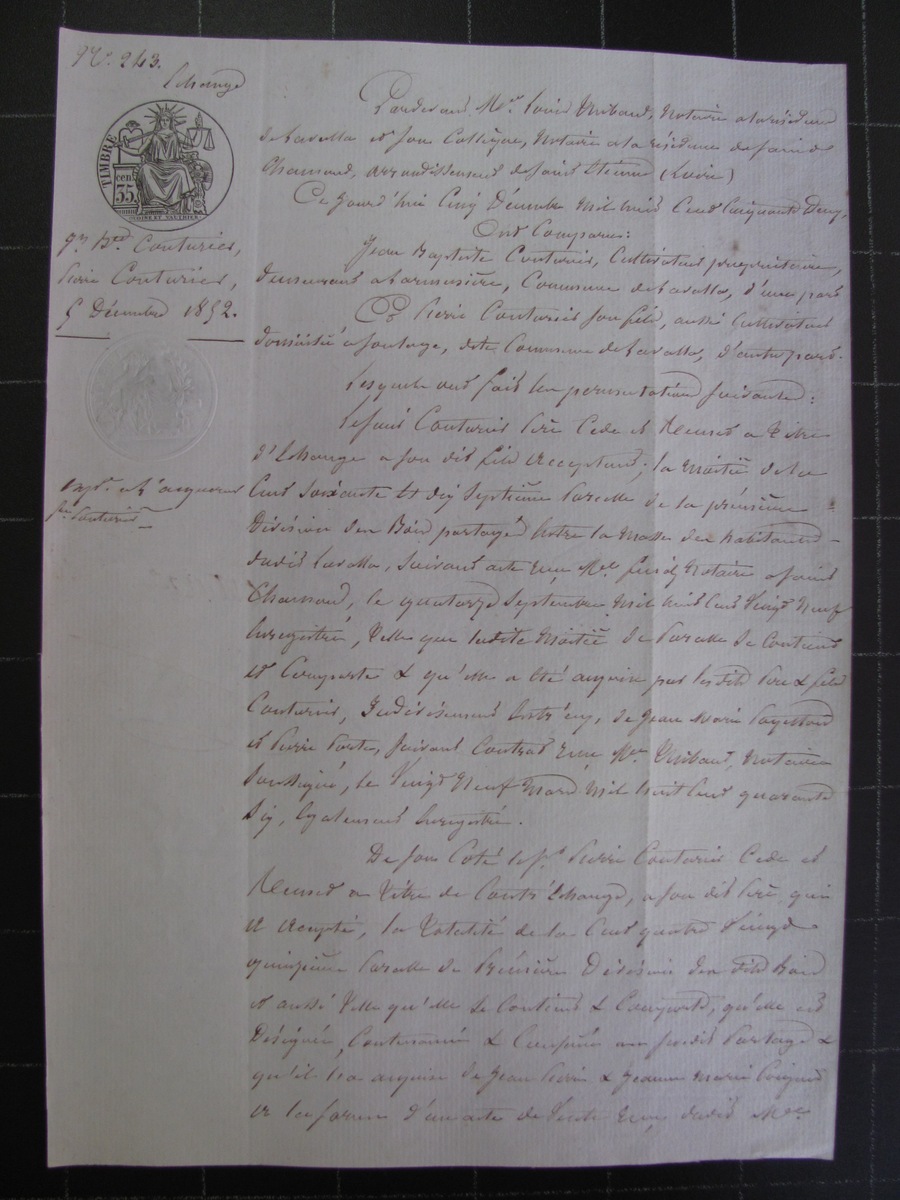 N°. 243.
Echange
TIMBRE
cen.
35
J.n B.te Couturier,
Pierre Couturier,
5 Décembre 1852.
exp.on à l'acquereur
Couturier
Pardevant M.re Louis Thibaud, Notaire à la résidence
de Lavalla et son Collègue, Notaire à la résidence de Saint
Chamond, arrondissement de Saint Etienne (Loire)
Ce jourd'hui Cinq Décembre Mil huit Cent Cinquante Deux,
Ont Comparu:
Jean Baptiste Couturier, Cultivateur propriétaire,
demeurant à Commune de Lavalla, d'une part
Et Pierre Couturier son fils, aussi Cultivateur
domicilié à dite Commune de Lavalla, d'autre part.
Lesquels ont fait la permutation suivante:
Le Couturier Père Cède et Remet à titre
d'Echange à son dit fils acceptant, la Moitié de la
Cent Soixante et dix Septième Parcelle de la première
Division des Bois partagés Entre la Masse des habitants
dudit Lavalla, Suivant acte reçu M.re Notaire à Saint
Chamond, le quatorze Septembre Mil huit Cent Vingt Neuf
Enregistré, Telle que ladite Moitié de Parcelle Se Contient
et Comporte & qu'elle a été acquise par les dits Père & fils
Couturier, Indivisément Entr'eux, de Jean Marie
et Pierre suivant Contrat reçu M.re Thibaud, Notaire
Soussigné, le Vingt Neuf Mars Mil huit Cent quarante
Six, Egalement Enregistré.
De son Coté le s.r Pierre Couturier Cède et
Remet à titre de Contr'Echange, à son dit Père, qui
et accepte, la Totalité de la Cent quatre Vingt
quinzième Parcelle de Première Division des dits Bois
et aussi Telle qu'elle Se Contient & Comporte, qu'elle est
Désignée, & Confinée au susdit Partage &
qu'il l'a acquise de Jean Pierre & Jeanne Marie
à la forme d'un acte de Vente reçu dudit M.re